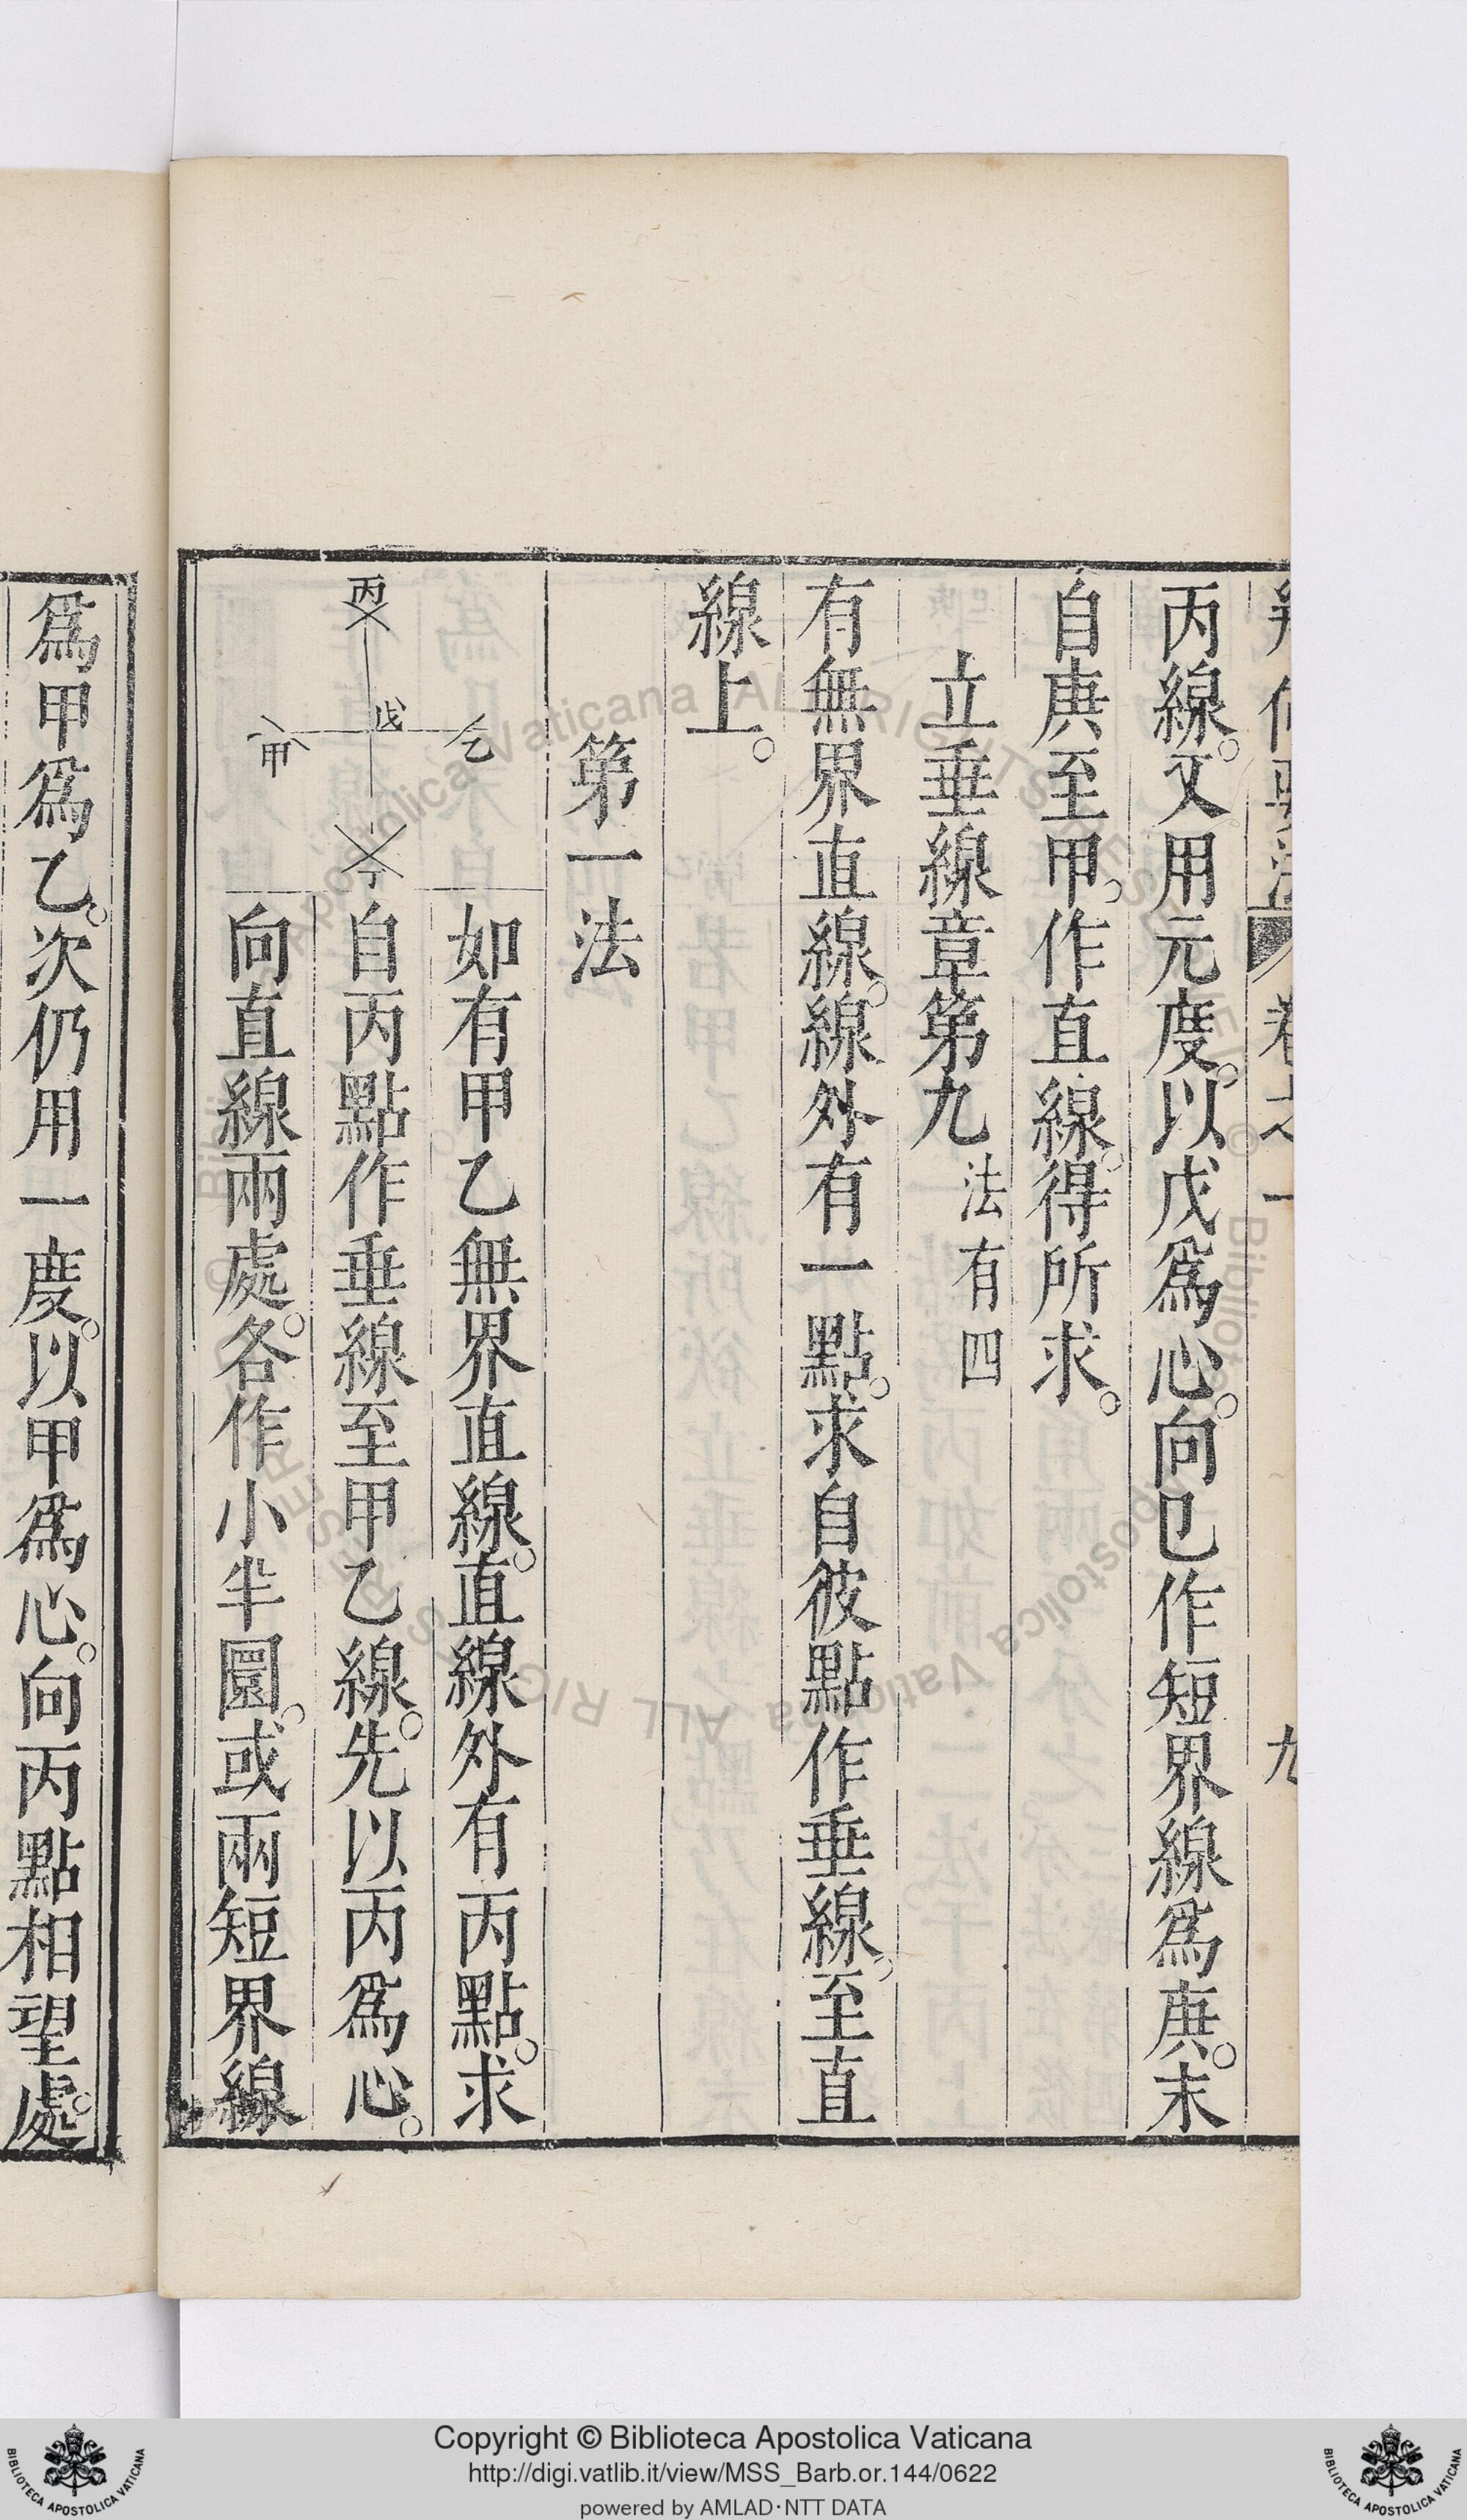 卷之一 九
丙線。又用元度。以戊爲心。向己作短界線爲庚。末
自庚至甲。作直線。得所求。
立垂線章第九 法有四
有無界直線。線外有一點。求自彼點作垂線。至直
線上。
第一法
丙
戊
乙
甲
丁
如有甲乙無界直線。直線外有丙點。求
自丙點作垂線至甲乙線。先以丙爲心。
向直線兩處。各作小半圜。或兩短界線
爲甲爲乙。次仍用一度。以甲爲心。向丙點相望處。
Copyright © Biblioteca Apostolica Vaticana
http://digi.vatlib.it/view/MSS_Barb.or.144/0622
powered by AMLAD·NTT DATA
BIBLIOTECA APOSTOLICA VATICANA
BIBLIOTECA APOSTOLICA VATICANA